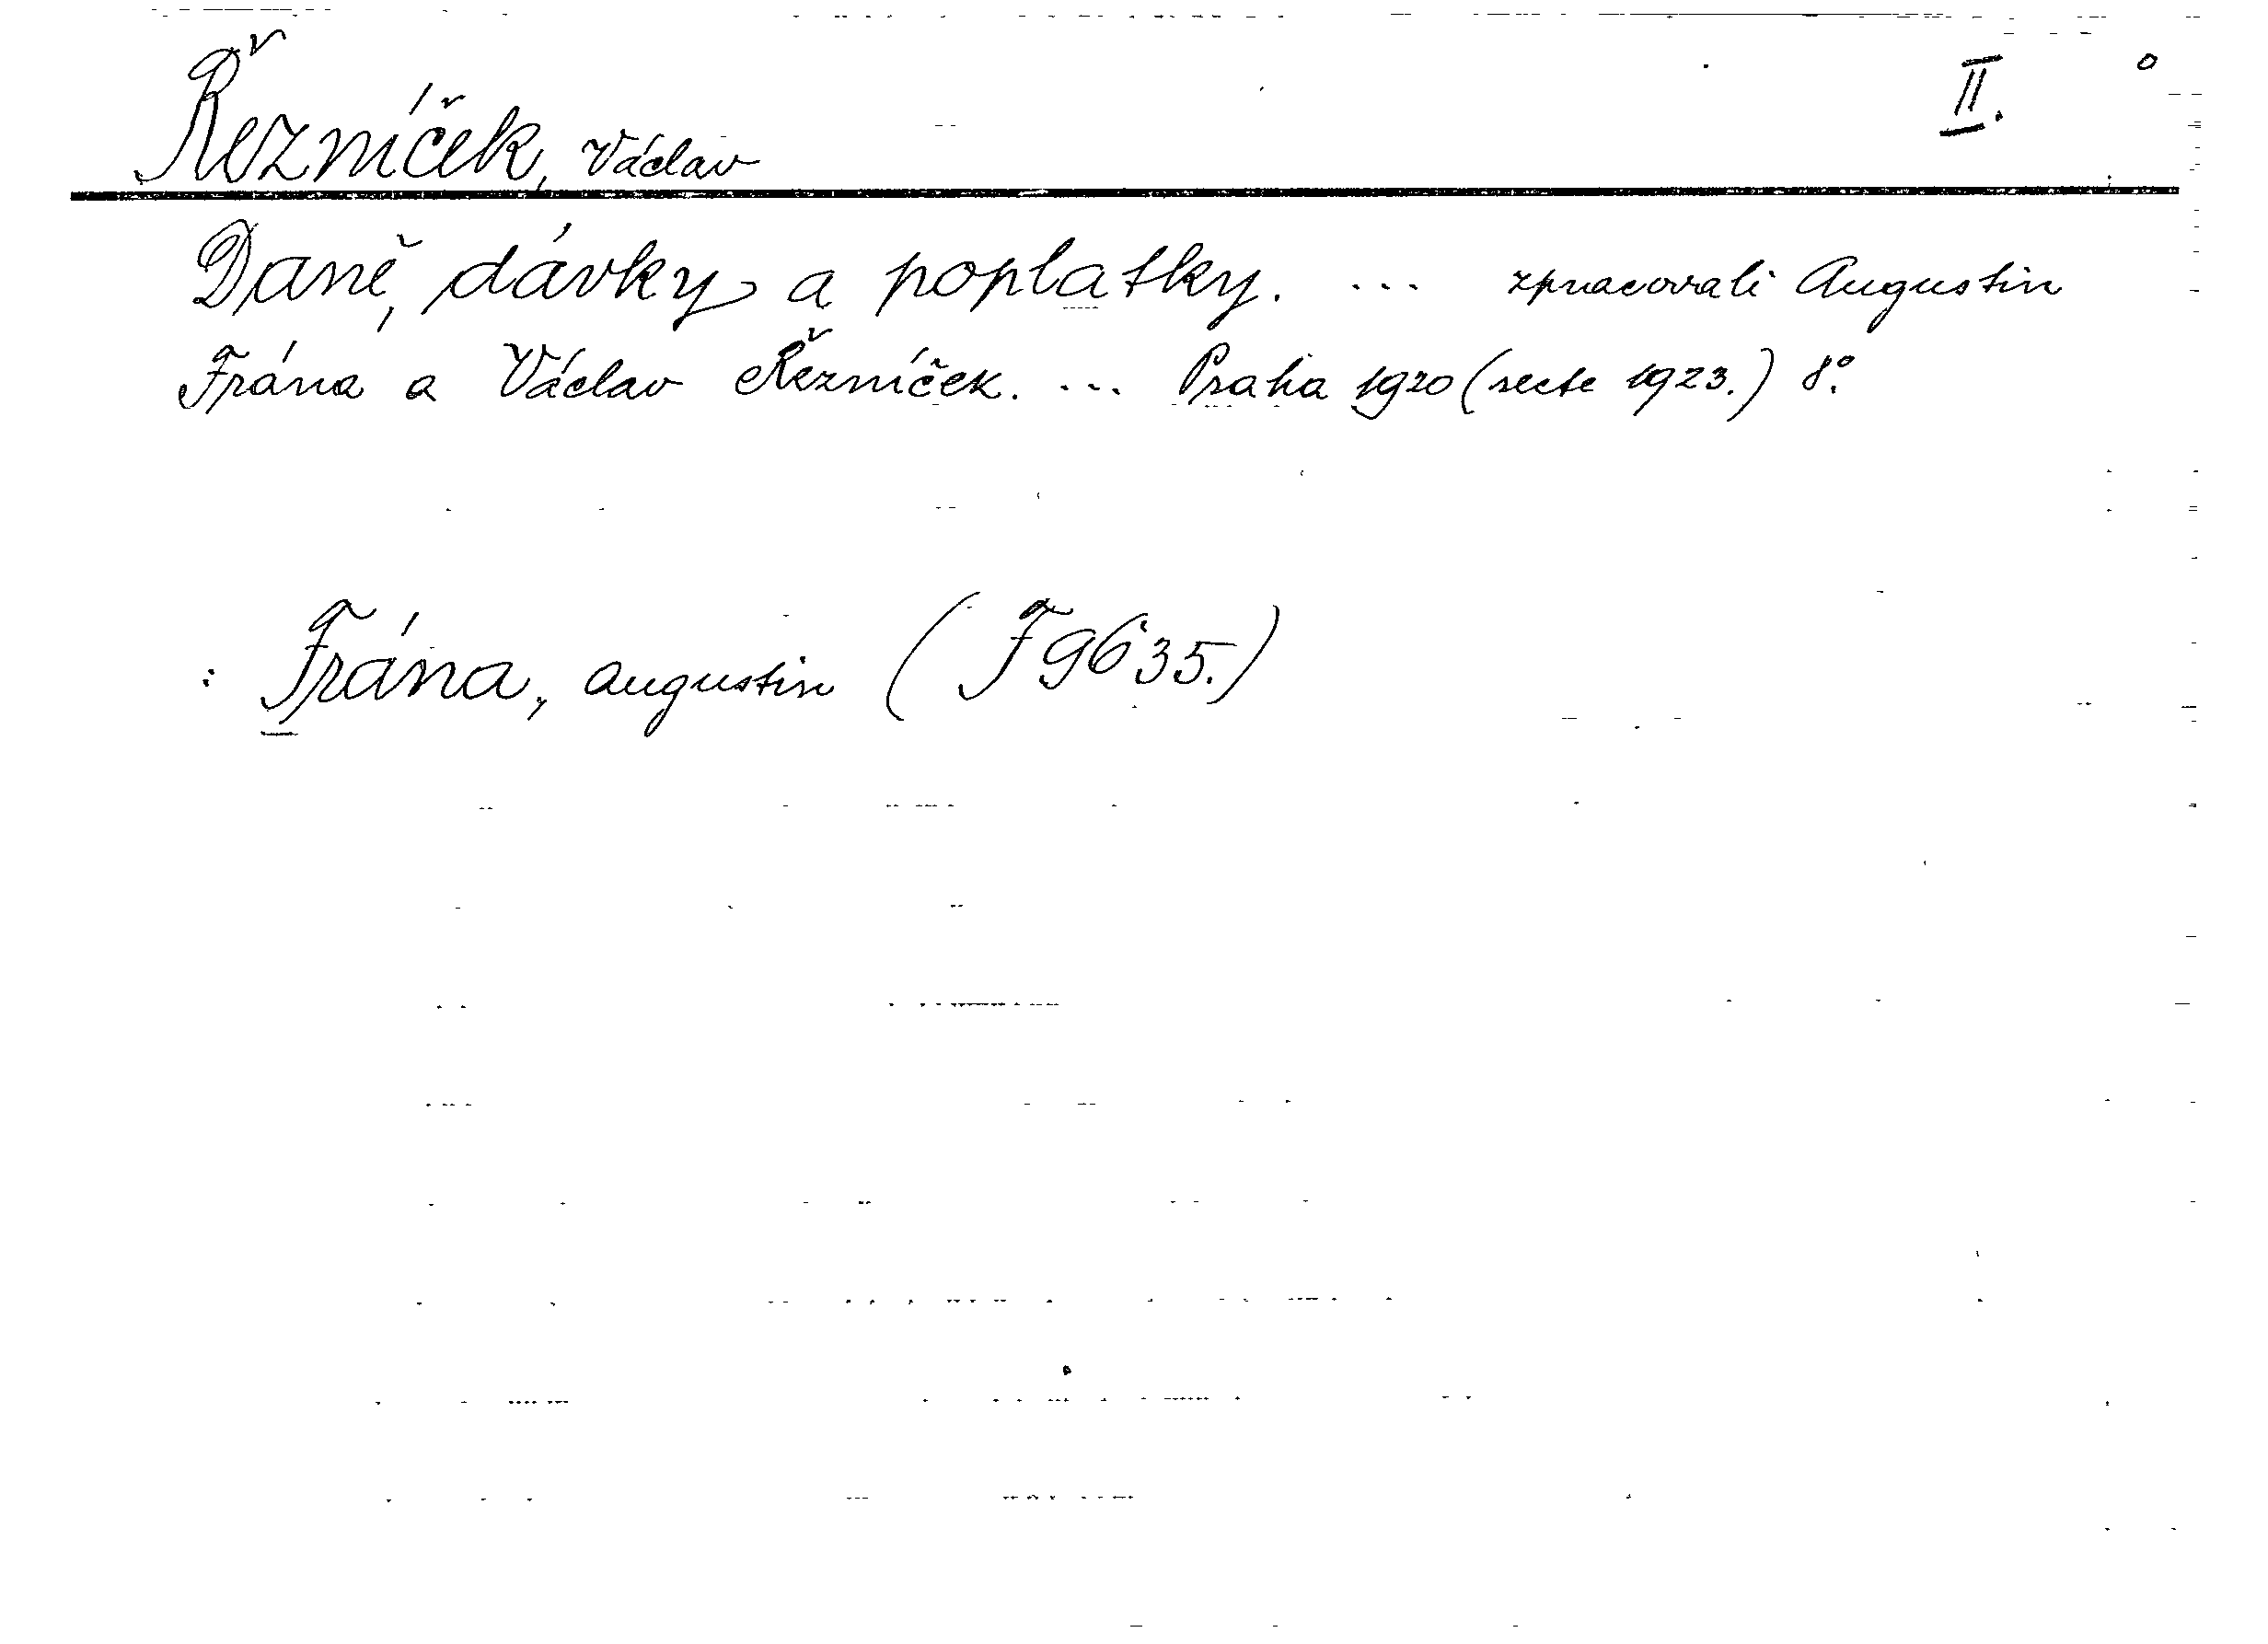 Řezníček, Václav II.
Daně, dávky a poplatky. ... zpracovali Augustin
Frána a Václav Řezníček. ... Praha 1920 (recte 1923.) 8°.
: Frána, Augustin (F 9635.)